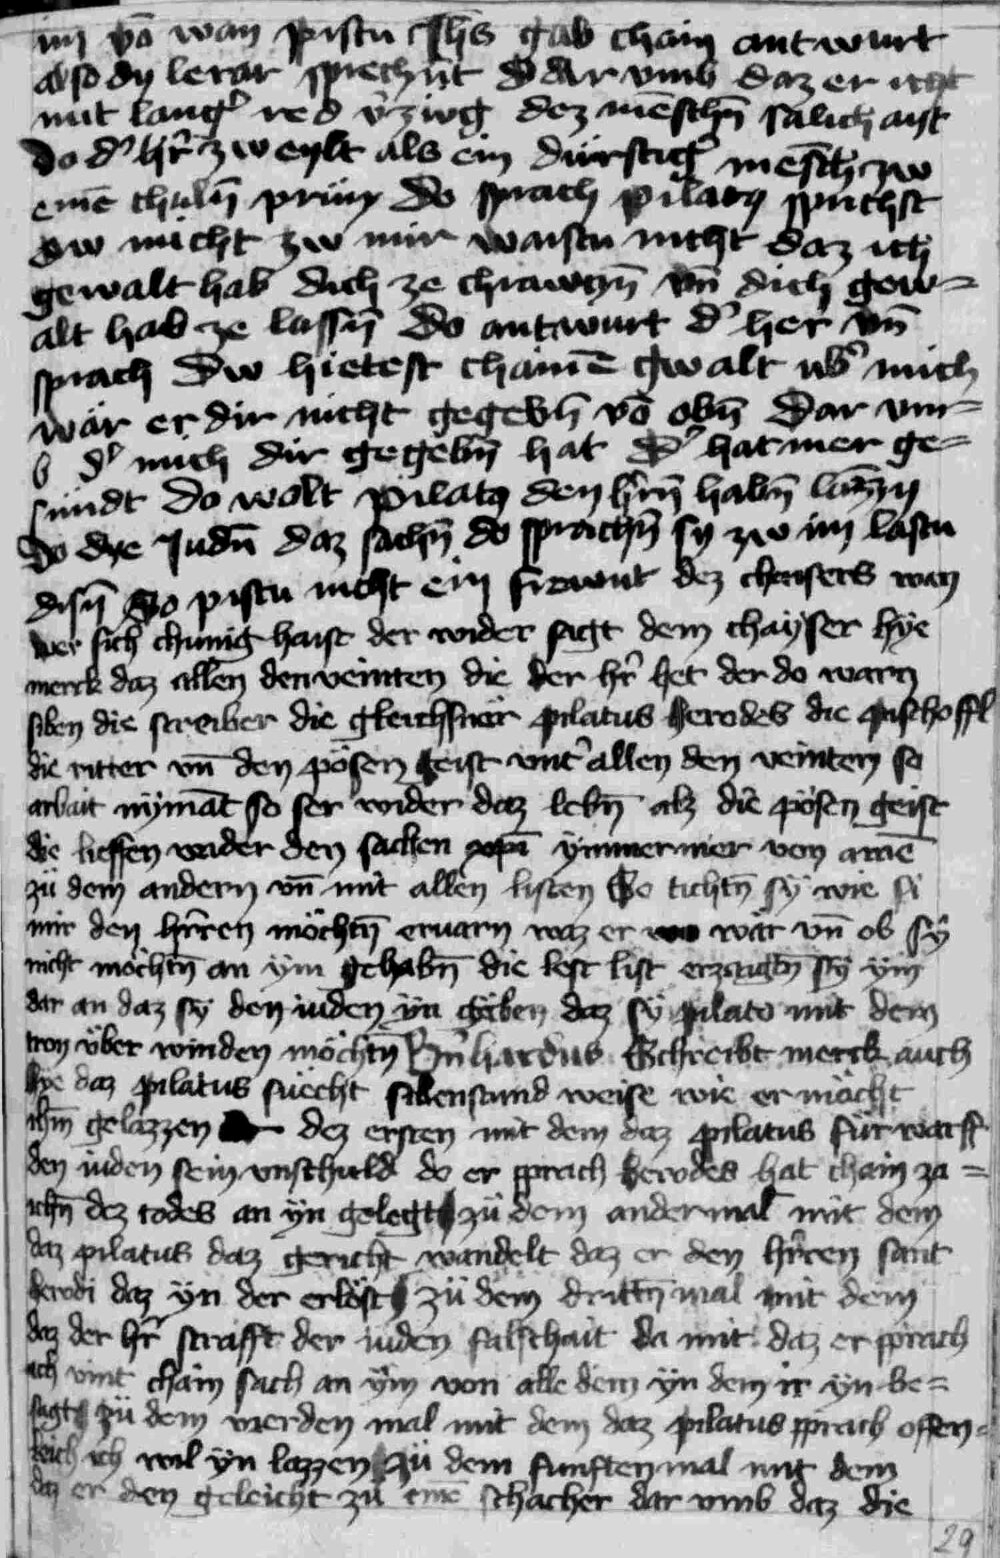 im vō wan pistu Jħs gab chain antwurt
also dy lerar sprechñt Dar vmb daz er icht
mit lang' red v'zivg dez mēschñ salichait
do d' hr̄ zweylt als ein durstig' mēsch zw
einē chulñ prun Do sprach pilat9 sprichst
dw nicht zw mir waistu nicht daz ich
gewalt hab dich ze chrawczñ vñ dich gew=
alt hab ze lassñ Do antwurt d' her vñ
sprach Dw hietest chainē gwalt ub' mich
wär er dir nicht gegebñ vō obñ Dar vm=
b d' mich dir gegebñ hat d' hat mer ge=
sündt do wolt pilat9 den hr̄n habñ lassñ
Do dye Judñ daz sachñ do sprachñ sy zw im lastu
disñ So pistu nicht ein frawnt dez chaisers wan
wer sich chunig haist der wider sagt dem chayser hye
merck daz allen den veinten die der hr̄ het der do warn
siben die screiber die gleichsnär pilatus herodes die pischoff
die ritter vñ den pösen geist vnt' allen den veinten so
arbait nymāt so ser wider daz lebñ alz die pösen geist
die lieffen wider den sachen xpi ymmermer von ainē
zü dem andern vñ mit allen listen So tichtñ sy wie si
mir den hr̄ren möchtñ ervarn waz er wär vñ ob sy
nicht möchtñ an ym gehabñ die lest list erzaigtñ sy ym
dar an daz sy den iuden yn gäben daz sy pilato mit dem
tron über winden möchtñ Bn̄hardus Schreibt merck auch
hye daz pilatus suecht sibenstund weise wie er möcht
ihm̄ gelazzen dez ersten mit dem daz pilatus für warff
den iuden sein vnschuld do er sprach herodes hat chain za=
ichñ dez todes an yn gelegt zü dem andermal mit dem
daz pilatus daz gericht wandelt daz er den hr̄ren sant
herodi daz yn der erlöst zü dem drittñ mal mit dem
daz der hr̄ strafft der iuden falschait da mit daz er sprach
ich vint chain sach an ym von alle dem yn dem ir yn be=
sagt zü dem vierden mal mit dem daz pilatus sprach offen=
leich ich wil yn lazzen zü dem funften mal mit dem
daz er den geleicht zü einē schacher dar vmb daz die
29